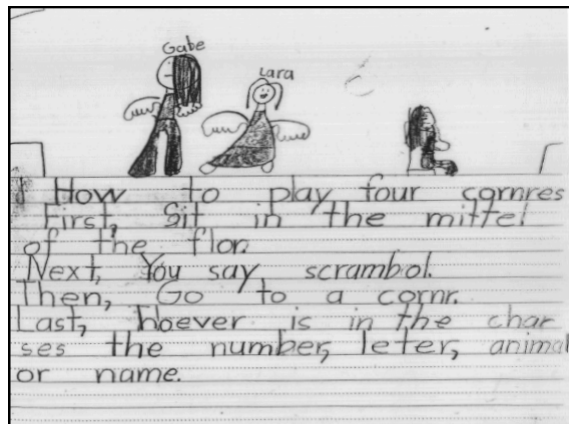 Gabe
Lara
How to play four cornres
First, Sit in the mittel
of the flor.
Next, You say scrambol.
Then, Go to a cornr.
Last, hoever is in the char
ses the number, leter, animal
or name.